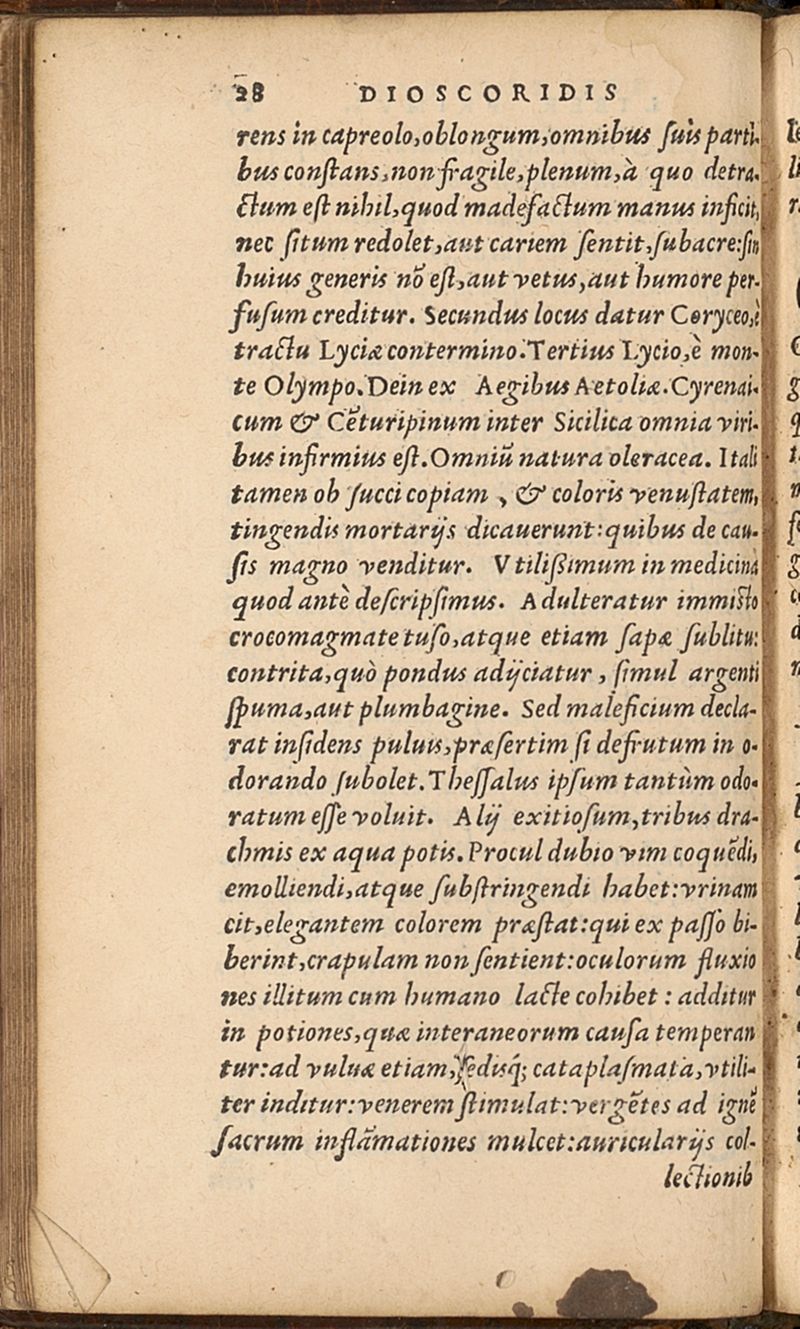 28 DIOSCORIDIS
rens in capreolo,oblongum,omnibus ſuis parti-
bus conſtans,non fragile,plenum,à quo detra-
ctum eſt nihil,quod madefactum manus inficit,
nec ſitum redolet,aut cariem ſentit,ſubacre:ſin
huius generis nõ eſt,aut vetus,aut humore per-
fuſum creditur. Secundus locus datur Coryceo,è
tractu Lyciæ contermino.Tertius Lycio,è mon-
te Olympo.Dein ex Aegibus Aetoliæ.Cyrenai-
cum & Cẽturipinum inter Sicilica omnia viri-
bus infirmius eſt.Omniũ natura oleracea. Itali
tamen ob ſucci copiam , & coloris venuſtatem,
tingendis mortarijs dicauerunt:quibus de cau-
ſis magno venditur. Vtiliſſimum in medicina
quod antè deſcripſimus. Adulteratur immiſto
crocomagmate tuſo,atque etiam ſapæ ſublitu:
contrita,quò pondus adijciatur, ſimul argenti
ſpuma,aut plumbagine. Sed maleficium decla-
rat inſidens puluis,præſertim ſi defrutum in o-
dorando ſubolet.Theſſalus ipſum tantùm odo-
ratum eſſe voluit. Alij exitioſum,tribus dra-
chmis ex aqua potis.Procul dubio vim coquẽdi,
emolliendi,atque ſubſtringendi habet:vrinam
cit,elegantem colorem præſtat:qui ex paſſo bi-
berint,crapulam non ſentient:oculorum fluxio
nes illitum cum humano lacte cohibet : additur
in potiones,quæ interaneorum cauſa temperan
tur:ad vuluæ etiam,ſediſq́; cataplaſmata,vtili-
ter inditur:venerem ſtimulat:vergẽtes ad ignẽ
ſacrum inflãmationes mulcet:auricularijs col-
lectionib